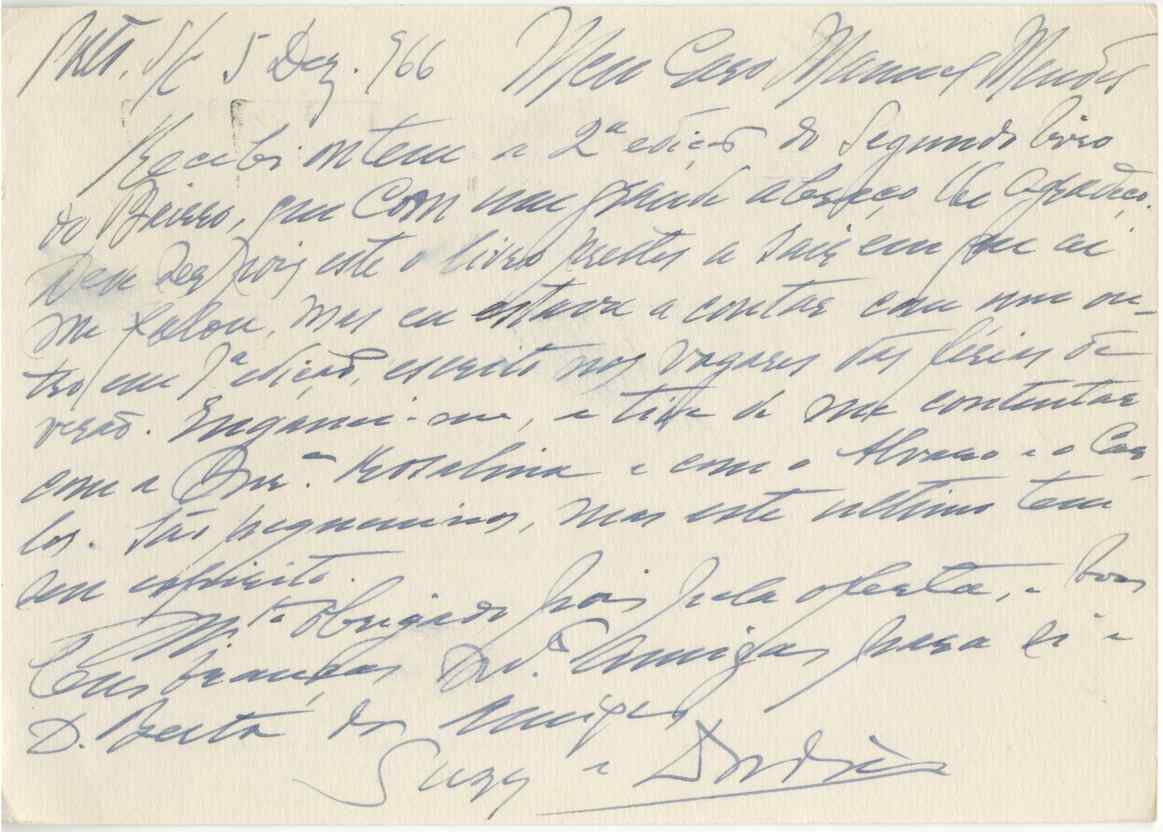 S/C 5 Dez. 966 Meu Caro Manuel Mendes
Recebi ontem a 2ª edição do Segundo livro
do Bairro, que com um grande abraço lhe agradeço.
pois este o livro prestes a sair em que aí
me falou, mas eu estava a contar com um ou-
tro em 1ª edição, escrito nos vagares das férias de
verão. Enganei-me, e tive de me contentar
com a Rosalina e com o Alvaro e o Car
los. São pequeninos, mas este ultimo tem
seu espirito.
Mto obrigado pois pela oferta, e boas
Lembranças amigas para si e
D. Berta dos Amigos
Suzy e